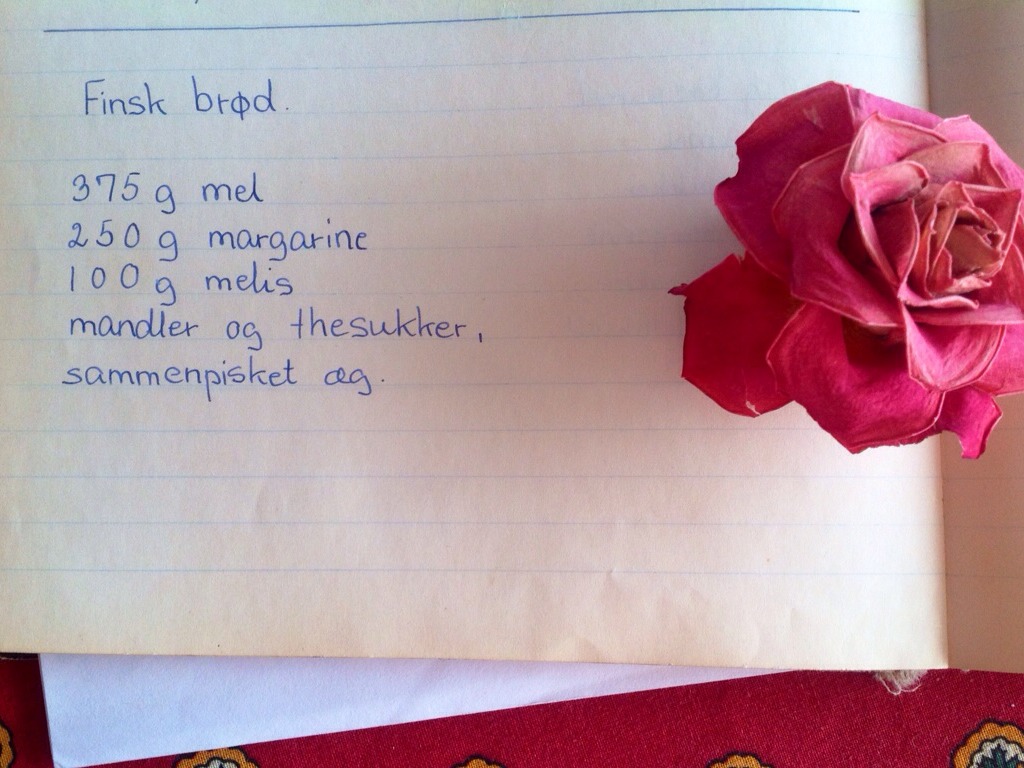 Finsk brød.
375 g mel
250 g margarine
100 g melis
mandler og thesukker,
sammenpisket æg.